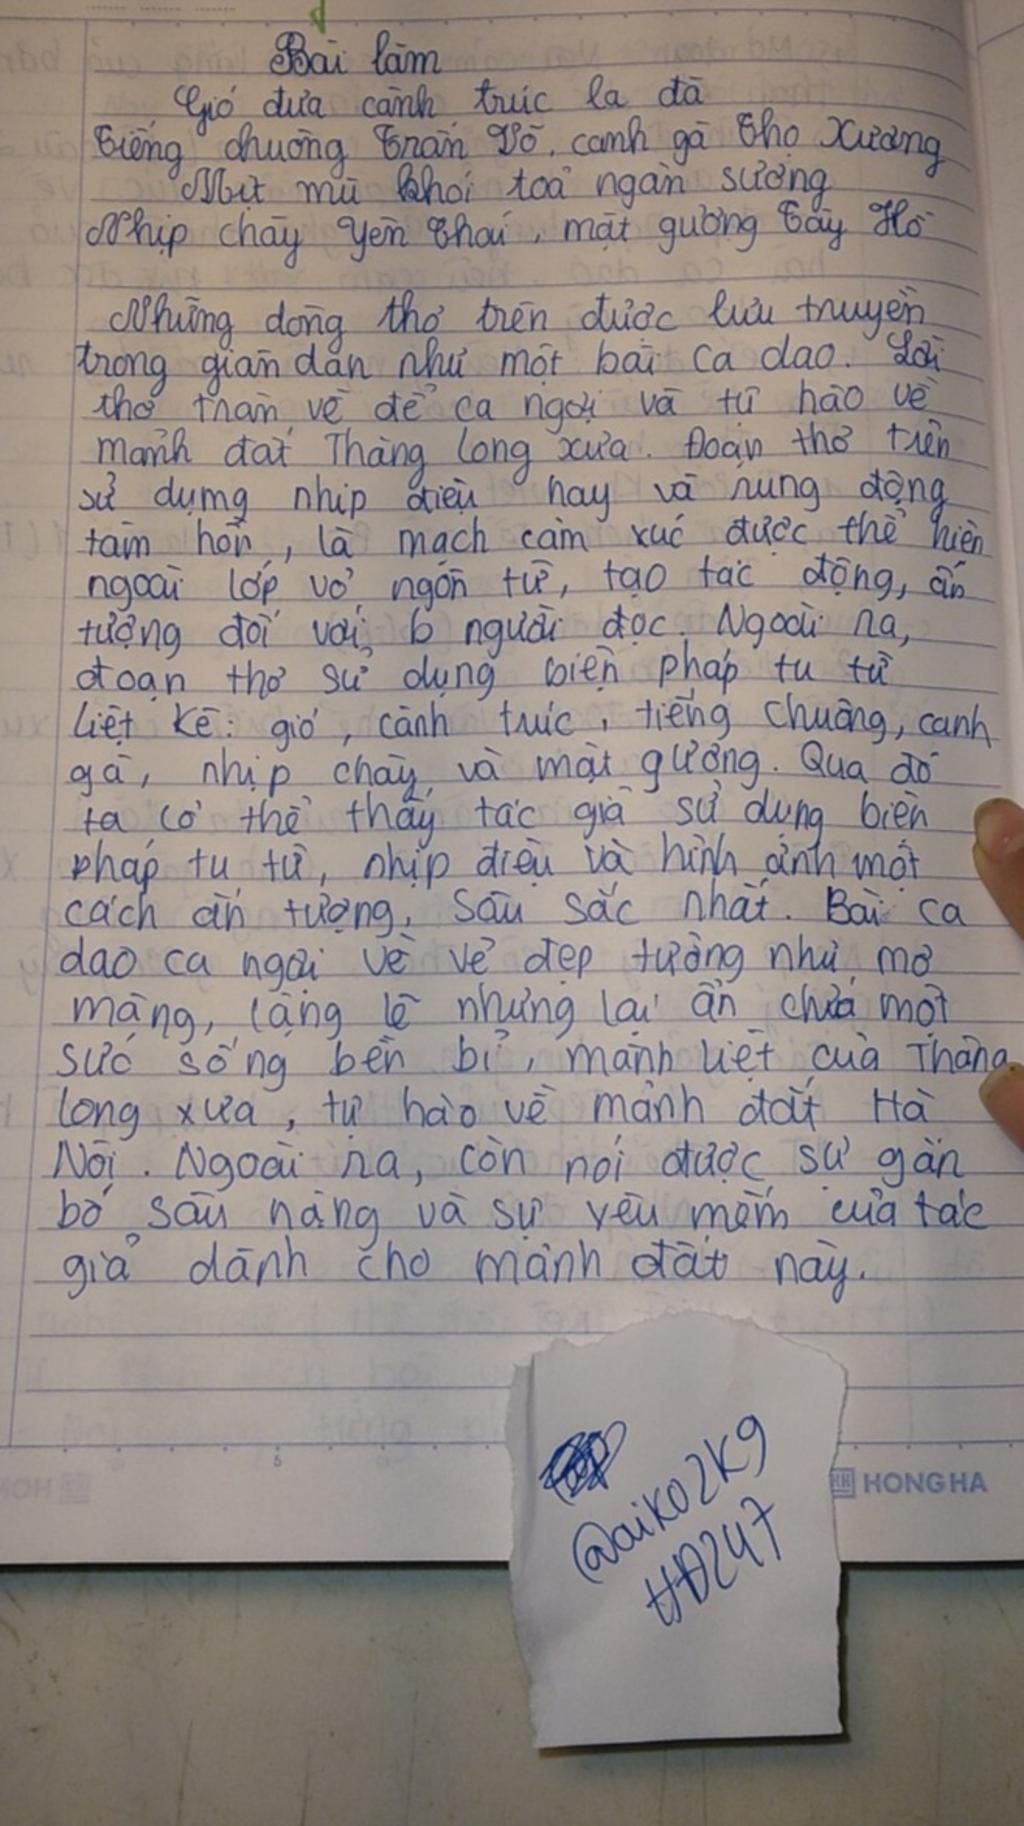 Bài làm
Gió đưa cành trúc la đà
Tiếng chuông Trấn Võ, canh gà Thọ Xương
Mịt mù khói toả ngàn sương
Nhịp chày Yên Thái, mặt gương Tây Hồ
Những dòng thơ trên được lưu truyền
trong gian dân như một bài ca dao. Lời
thơ tràn về để ca ngợi và tự hào về
mảnh đất Thăng Long xưa. Đoạn thơ trên
sử dụng nhịp điệu hay và rung động
tâm hồn, là mạch cảm xúc được thể hiện
ngoài lớp vỏ ngôn từ, tạo tác động, ấn
tượng đối với b người đọc. Ngoài ra,
đoạn thơ sử dụng biện pháp tu từ
liệt kê: gió, cành trúc, tiếng chuông, canh
gà, nhịp chày và mặt gương. Qua đó
ta có thể thấy tác giả sử dụng biện
pháp tu từ, nhịp điệu và hình ảnh một
cách ấn tượng, sâu sắc nhất. Bài ca
dao ca ngợi về vẻ đẹp tưởng như mơ
màng, lặng lẽ nhưng lại ẩn chứa một
sức sống bền bỉ, mãnh liệt của Thăng
Long xưa, tự hào về mảnh đất Hà
Nội. Ngoài ra, còn nói được sự gắn
bó sâu nặng và sự yêu mến của tác
giả dành cho mảnh đất này.
HONG HA
@aiko2k9
HĐ247